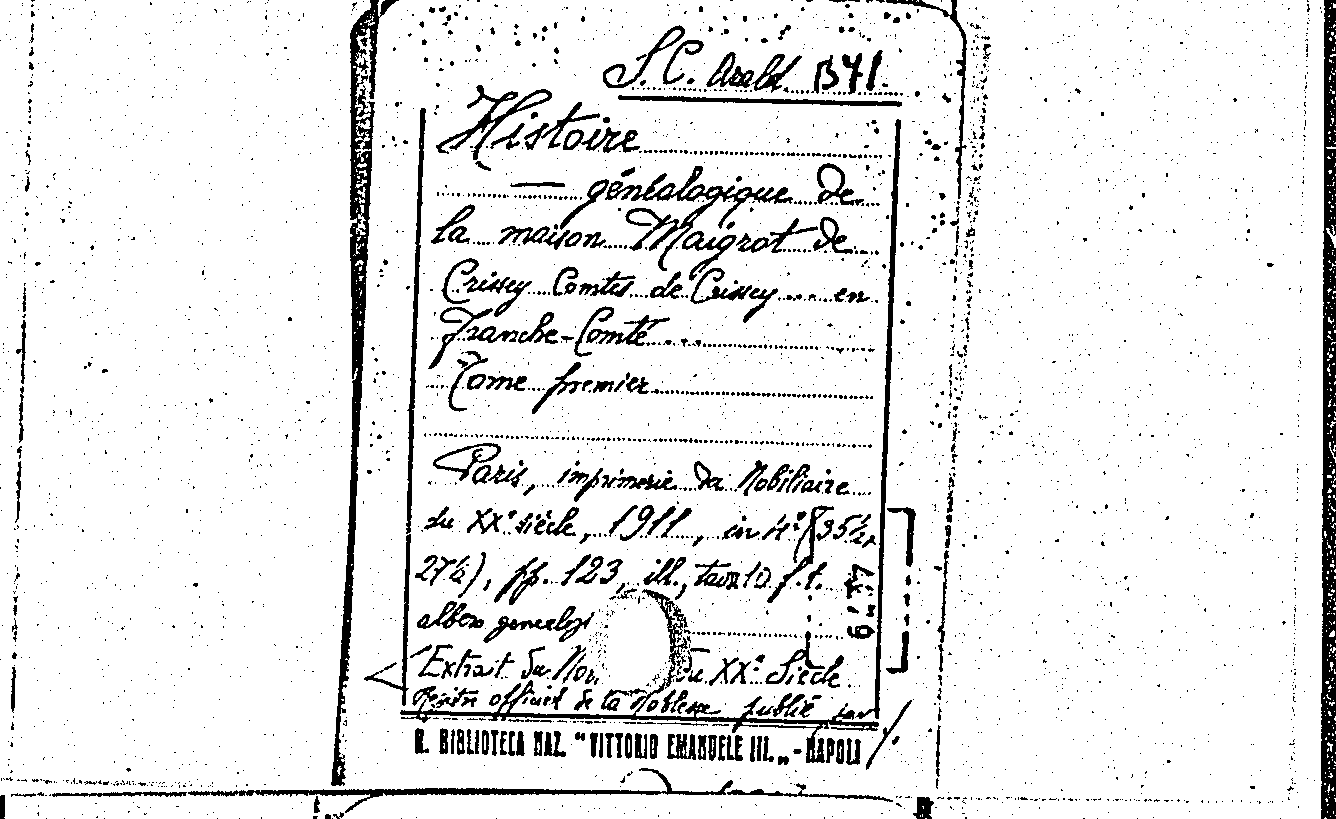 S.C. Arald. B41.
Histoire
— généalogique de
la maison Maigrot de
Crissey Comtes de Crissey ... en
Franche-Comté ...
Tome premier
Paris, imprimerie du Nobiliaire
du XXe siècle, 1911, in 4º (35½,
27½), pp. 123, ill., tav. 10 f.t.
albero genealogi
Extrait du No du XXe Siècle
officiel de la Noblesse publié par
R. BIBLIOTECA NAZ. "VITTORIO EMANUELE III.„ - NAPOLI